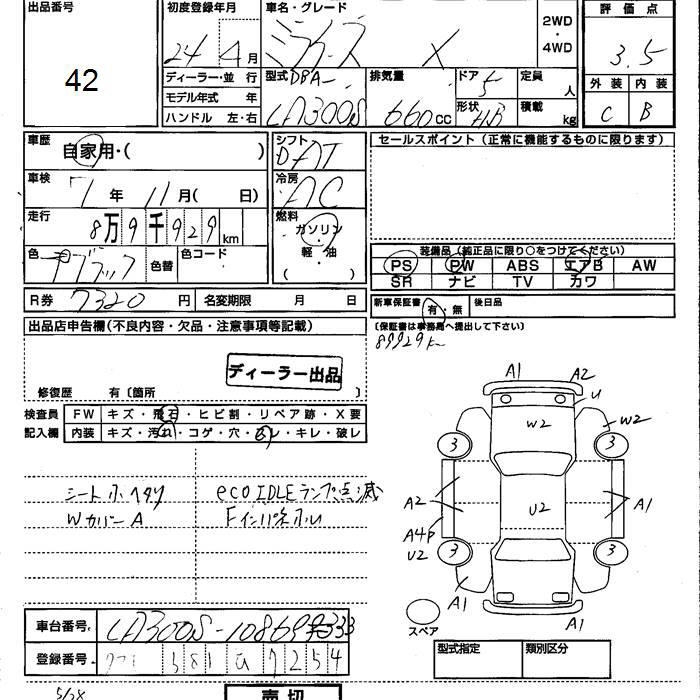 出品番号
42
初度登録年月
24 年 4 月
車名・グレード
ミライース X
2WD・4WD
評価点
3.5
外装 内装
C B
ディーラー・並 行
モデル年式 年
ハンドル 左・右
型式 DBA-
LA300S
排気量
660 cc
ドア 5
形状 HB
定員 人
積載 kg
車歴 自家用・( )
車検 7年 11月( 日)
走行 8万9千929 km
色 色替 色コード
R券 7320 円 名変期限 月 日
シフト
冷房
AC
燃料
ガソリン・軽油
( )
セールスポイント(正常に機能するものに限ります)
装備品(純正品に限り○をつけてください)
PS PW ABS エアB AW
SR ナビ TV カワ
新車保証書 有・無 後日品
(保証書は事務局へ提出して下さい)
89929km
出品店申告欄(不良内容・欠品・注意事項等記載)
ディーラー出品
修復歴 有〔箇所 〕
検査員 FW キズ・飛石・ヒビ割・リペア跡・X要
記入欄 内装 キズ・汚れ・コゲ・穴・スレ・キレ・破レ
シートホヘタリ
WカバーA
eco IDLEランプ点滅
Fインパネホル
A1 A2
U
W2 W2
3 3
A2 U2 A1
A4P
U2
3 3
A1 A1
スペア
車台番号 LA300S-
登録番号 581 7254
型式指定 類別区分
5/28
売切